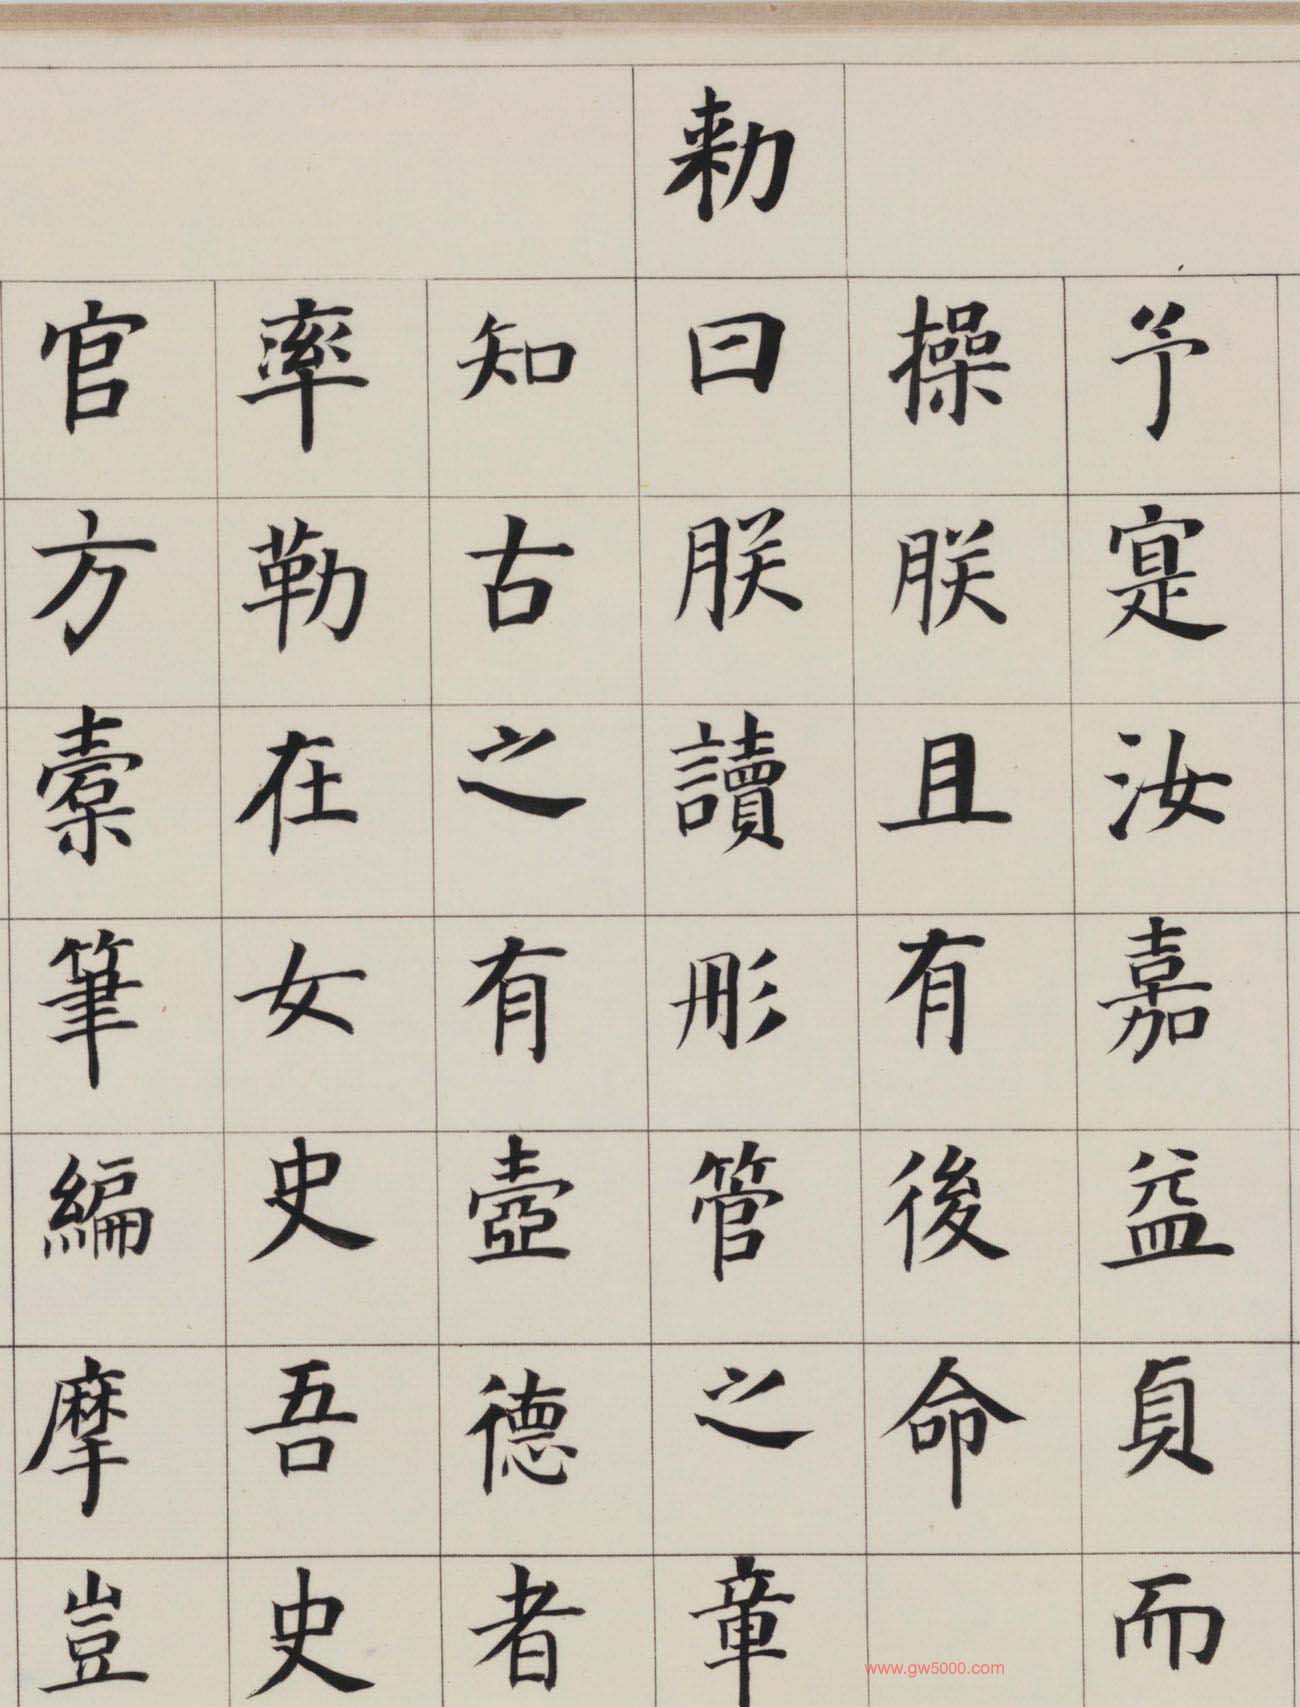 予寔汝嘉益貞而
操朕且有後命
勑曰朕讀彤管之章
知古之有壼德者
率勒在女史吾史
官方橐筆編摩豈
www.gw5000.com